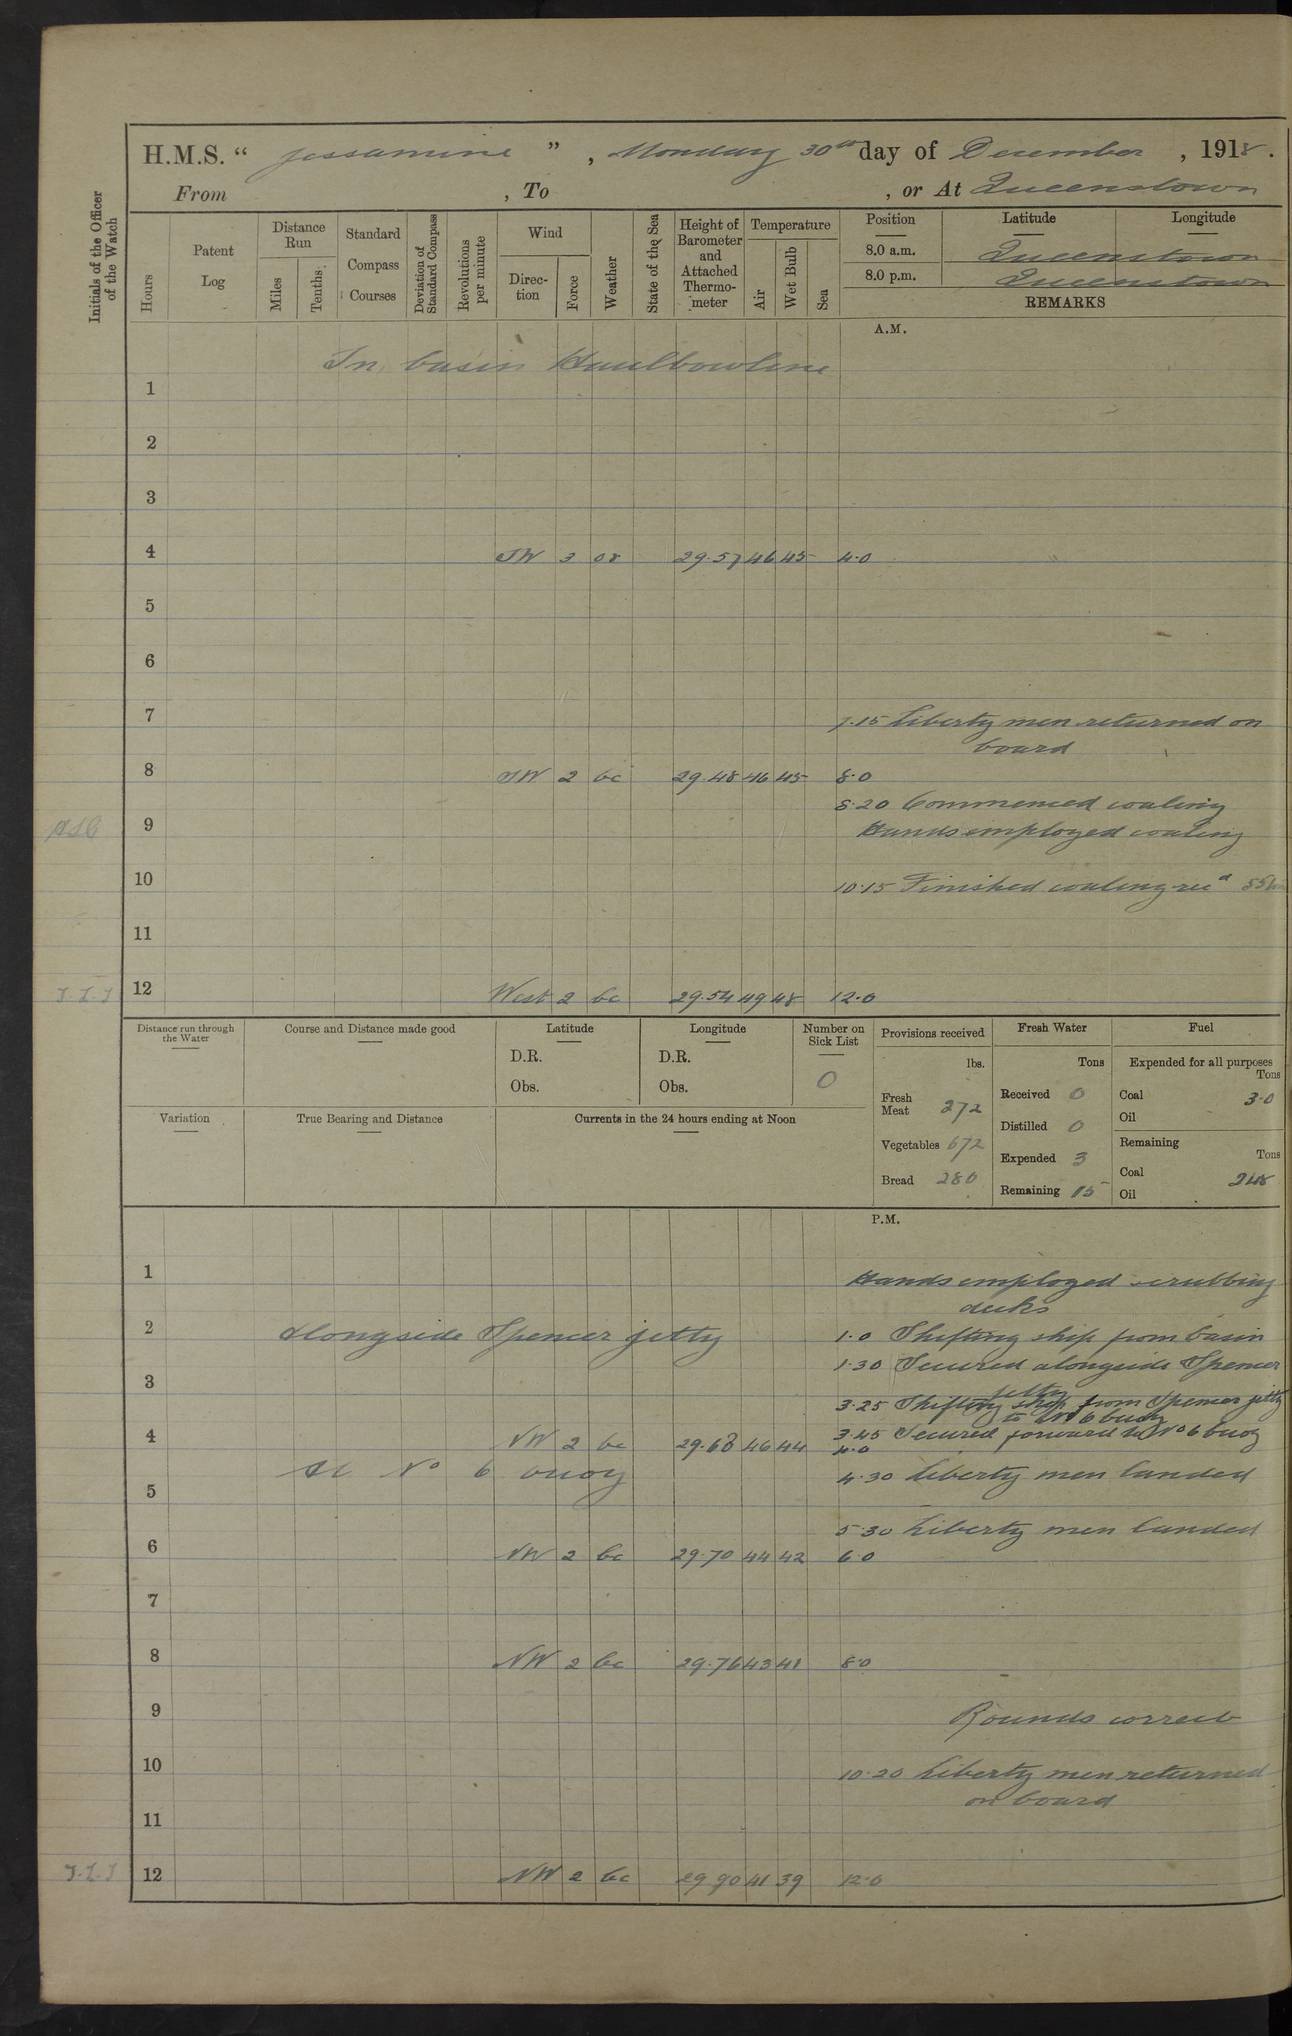 H.M.S. “ Jessamine ” , Monday 30th day of December , 1918 .
From , To , or At Queenstown
Initials of the Officer of the Watch
Hours
Patent Log
Distance Run
Miles
Tenths
Standard Compass Courses
Deviation of Standard Compass
Revolutions per minute
Wind
Direc-tion
Force
Weather
State of the Sea
Height of Barometer and Attached Thermo-meter
Temperature
Air
Wet Bulb
Sea
Position Latitude Longitude
8.0 a.m. Queenstown
8.0 p.m. Queenstown
REMARKS
A.M.
In basin Haulbowline
1
2
3
4 SW 3 or 29.57 46 45 4.0
5
6
7 7.15 Liberty men returned on
board
8 SW 2 bc 29.48 46 45 8.0
8.20 Commenced coaling
9 Hands employed coaling
10 10.15 Finished coaling recd 55
11
12 West 2 bc 29.54 49 48 12.0
Distance run through the Water
Course and Distance made good
Latitude
D.R.
Obs.
Longitude
D.R.
Obs.
Number on Sick List
0
Variation
True Bearing and Distance
Currents in the 24 hours ending at Noon
Provisions received
lbs.
Fresh Meat 272
Vegetables 672
Bread 280
Fresh Water
Tons
Received 0
Distilled 0
Expended 3
Remaining 15
Fuel
Expended for all purposes
Tons
Coal 3.0
Oil
Remaining
Tons
Coal 248
Oil
P.M.
1 Hands employed scrubbing
decks
2 Alongside Spencer jetty 1.0 Shifting ship from basin
1.30 Secured alongside Spencer
jetty
3
3.25 Shifting ship from Spencer jetty
to No 6 buoy
3.45 Secured forward to No 6 buoy
4 NW 2 bc 29.63 46 44 4.0
At No 6 buoy 4.30 Liberty men landed
5
5.30 Liberty men landed
6 NW 2 bc 29.70 44 42 6.0
7
8 NW 2 bc 29.76 43 41 8.0
9 Rounds correct
10 10.20 Liberty men returned
on board
11
12 NW 2 bc 29.90 41 39 12.0